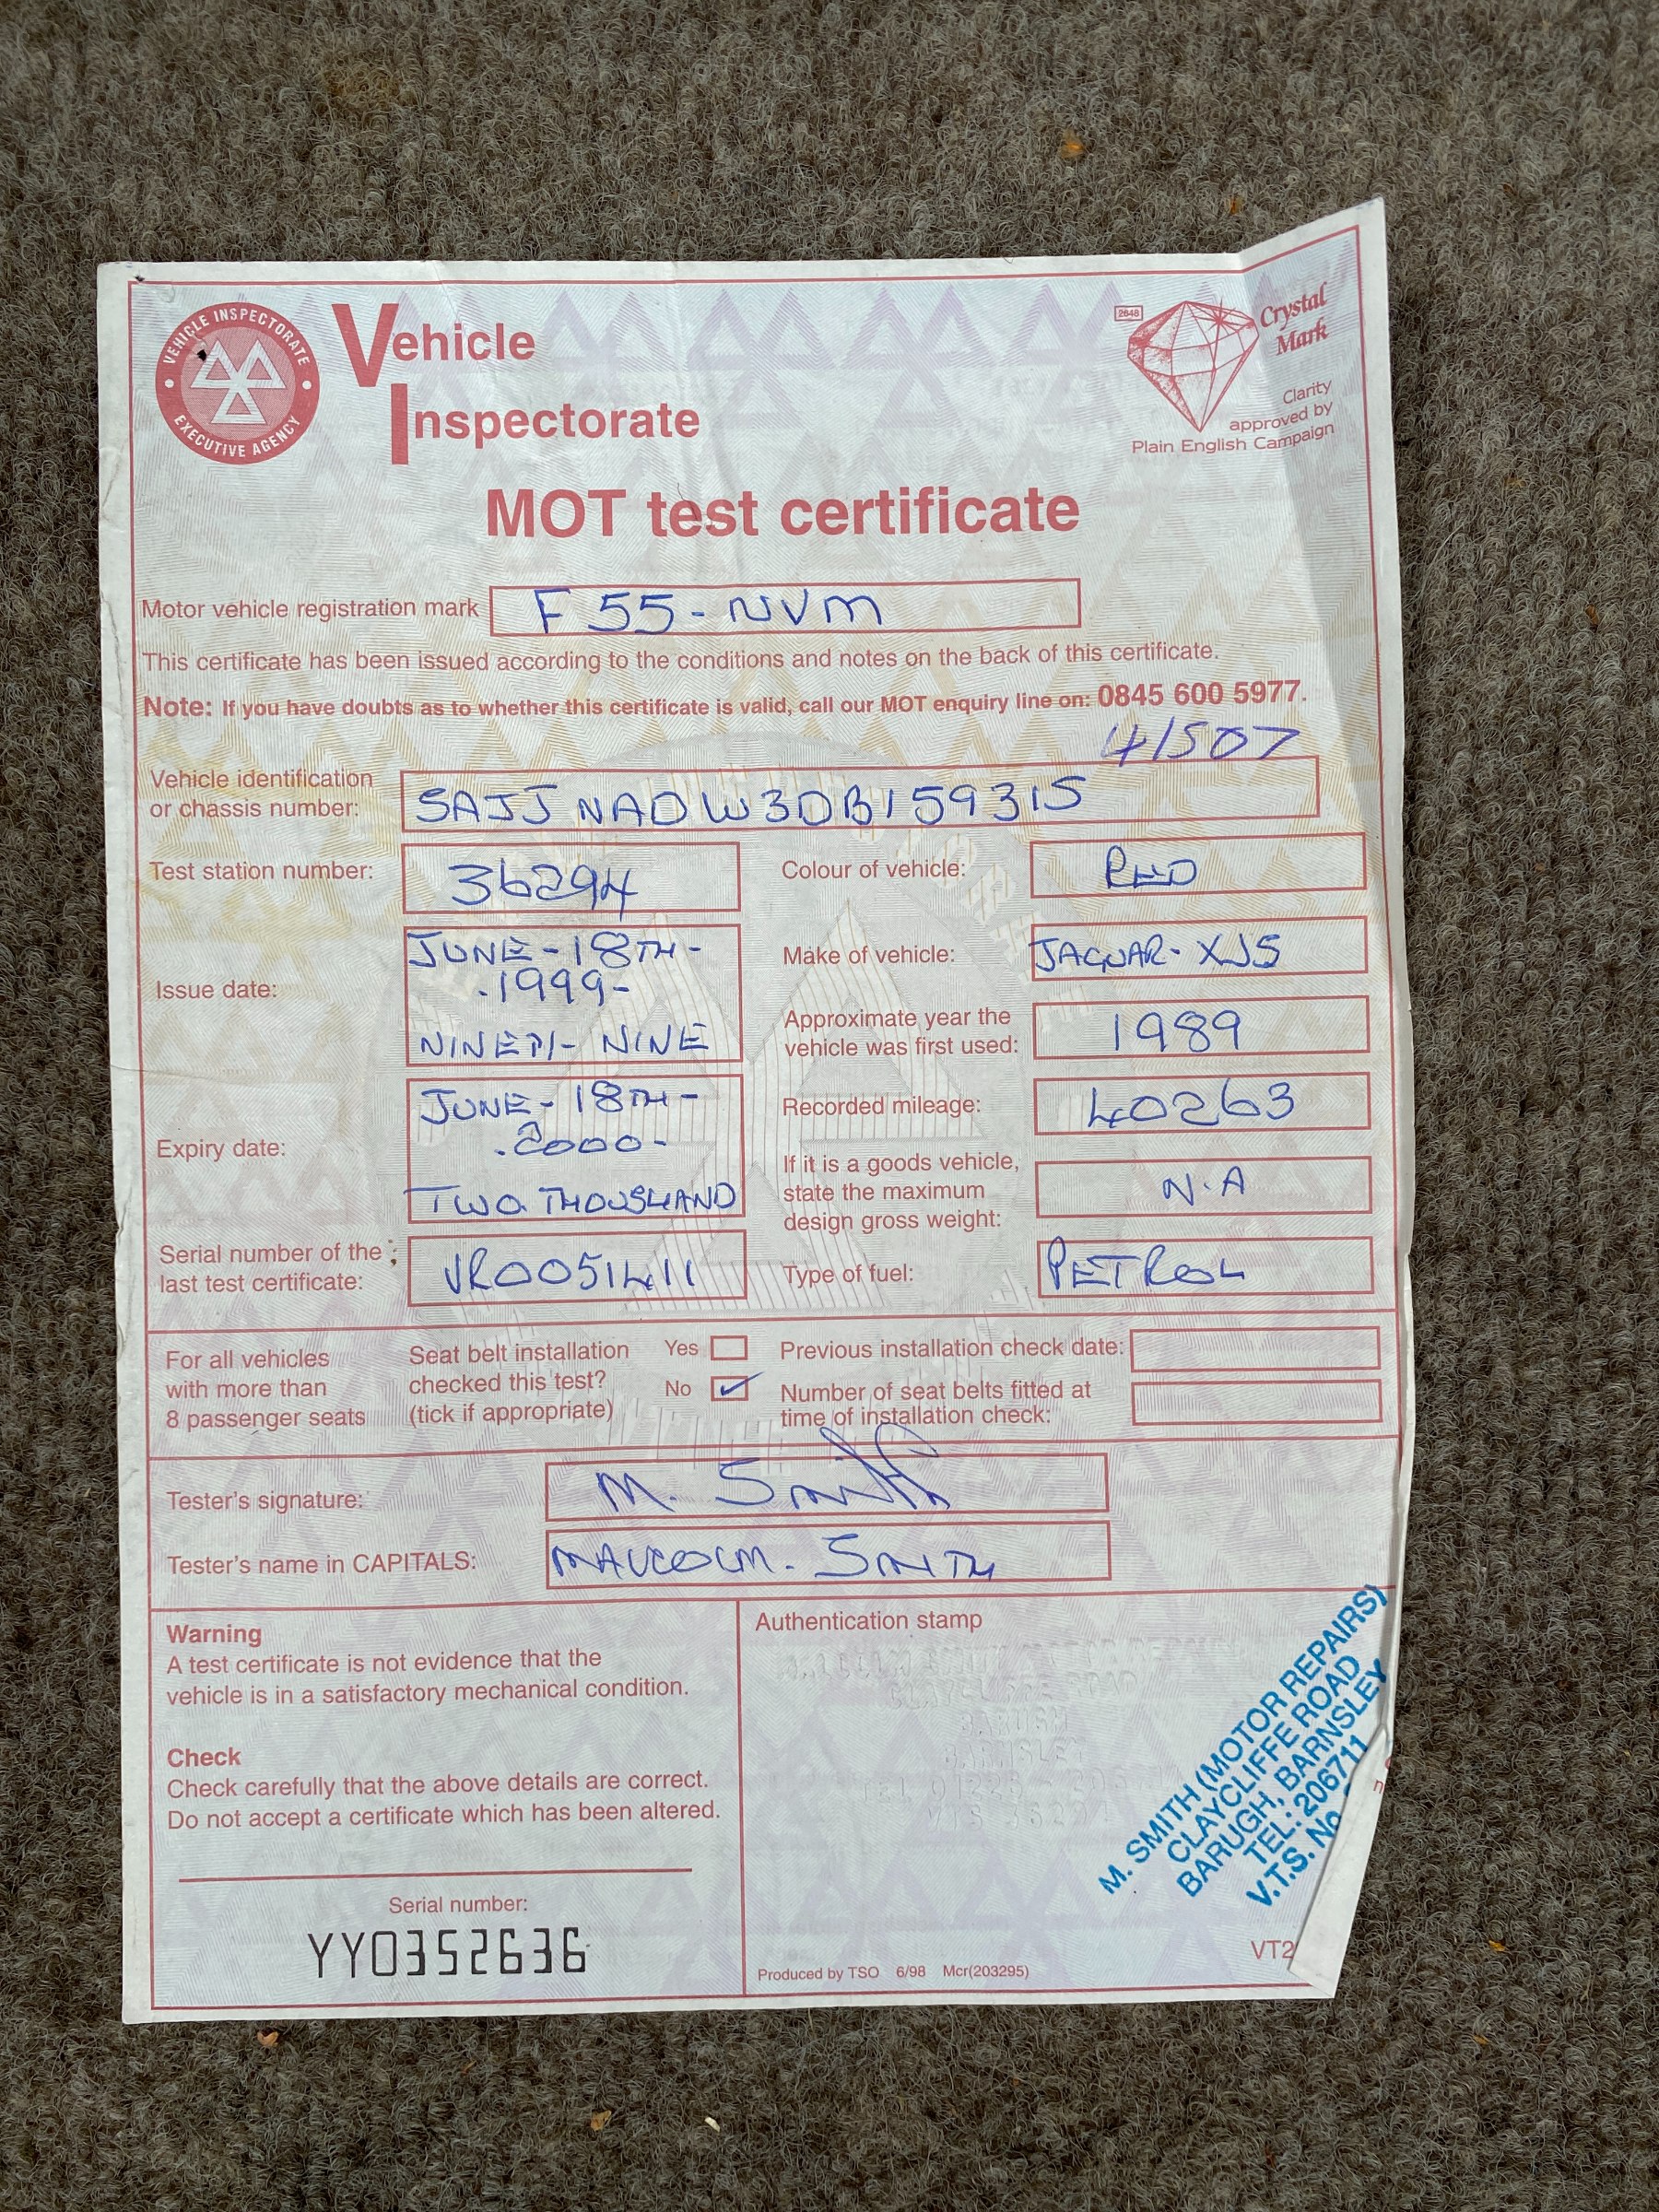 VEHICLE INSPECTORATE
EXECUTIVE AGENCY
Vehicle
Inspectorate
2648
Crystal
Mark
Clarity
approved by
Plain English Campaign
MOT test certificate
Motor vehicle registration mark F 55-NVM
This certificate has been issued according to the conditions and notes on the back of this certificate.
Note: If you have doubts as to whether this certificate is valid, call our MOT enquiry line on: 0845 600 5977.
41507
Vehicle identification
or chassis number: SAJJNADW3DB159315
Test station number: 36294
Colour of vehicle: RED
Issue date: JUNE-18TH-
.1999-
NINETY- NINE
Make of vehicle: JAGUAR-XJS
Approximate year the
vehicle was first used: 1989
Expiry date: JUNE-18TH-
.2000-
TWO. THOUSHAND
Recorded mileage: 40263
If it is a goods vehicle,
state the maximum
design gross weight: N.A
Serial number of the
last test certificate: VR0051411
Type of fuel: PETROL
For all vehicles
with more than
8 passenger seats
Seat belt installation
checked this test?
(tick if appropriate)
Yes
No ✓
Previous installation check date:
Number of seat belts fitted at
time of installation check:
Tester's signature: M. Smith
Tester's name in CAPITALS: MALCOLM. SMITH
Warning
A test certificate is not evidence that the
vehicle is in a satisfactory mechanical condition.
Check
Check carefully that the above details are correct.
Do not accept a certificate which has been altered.
Serial number:
YY0352636
Authentication stamp
CLAYCLIFFE ROAD
BARUGH
BARNSLEY
TEL 01226
VTS 36294
M. SMITH (MOTOR REPAIRS)
CLAYCLIFFE ROAD
BARUGH, BARNSLEY
TEL: 206711
V.T.S. No.
Produced by TSO 6/98 Mcr(203295)
VT2